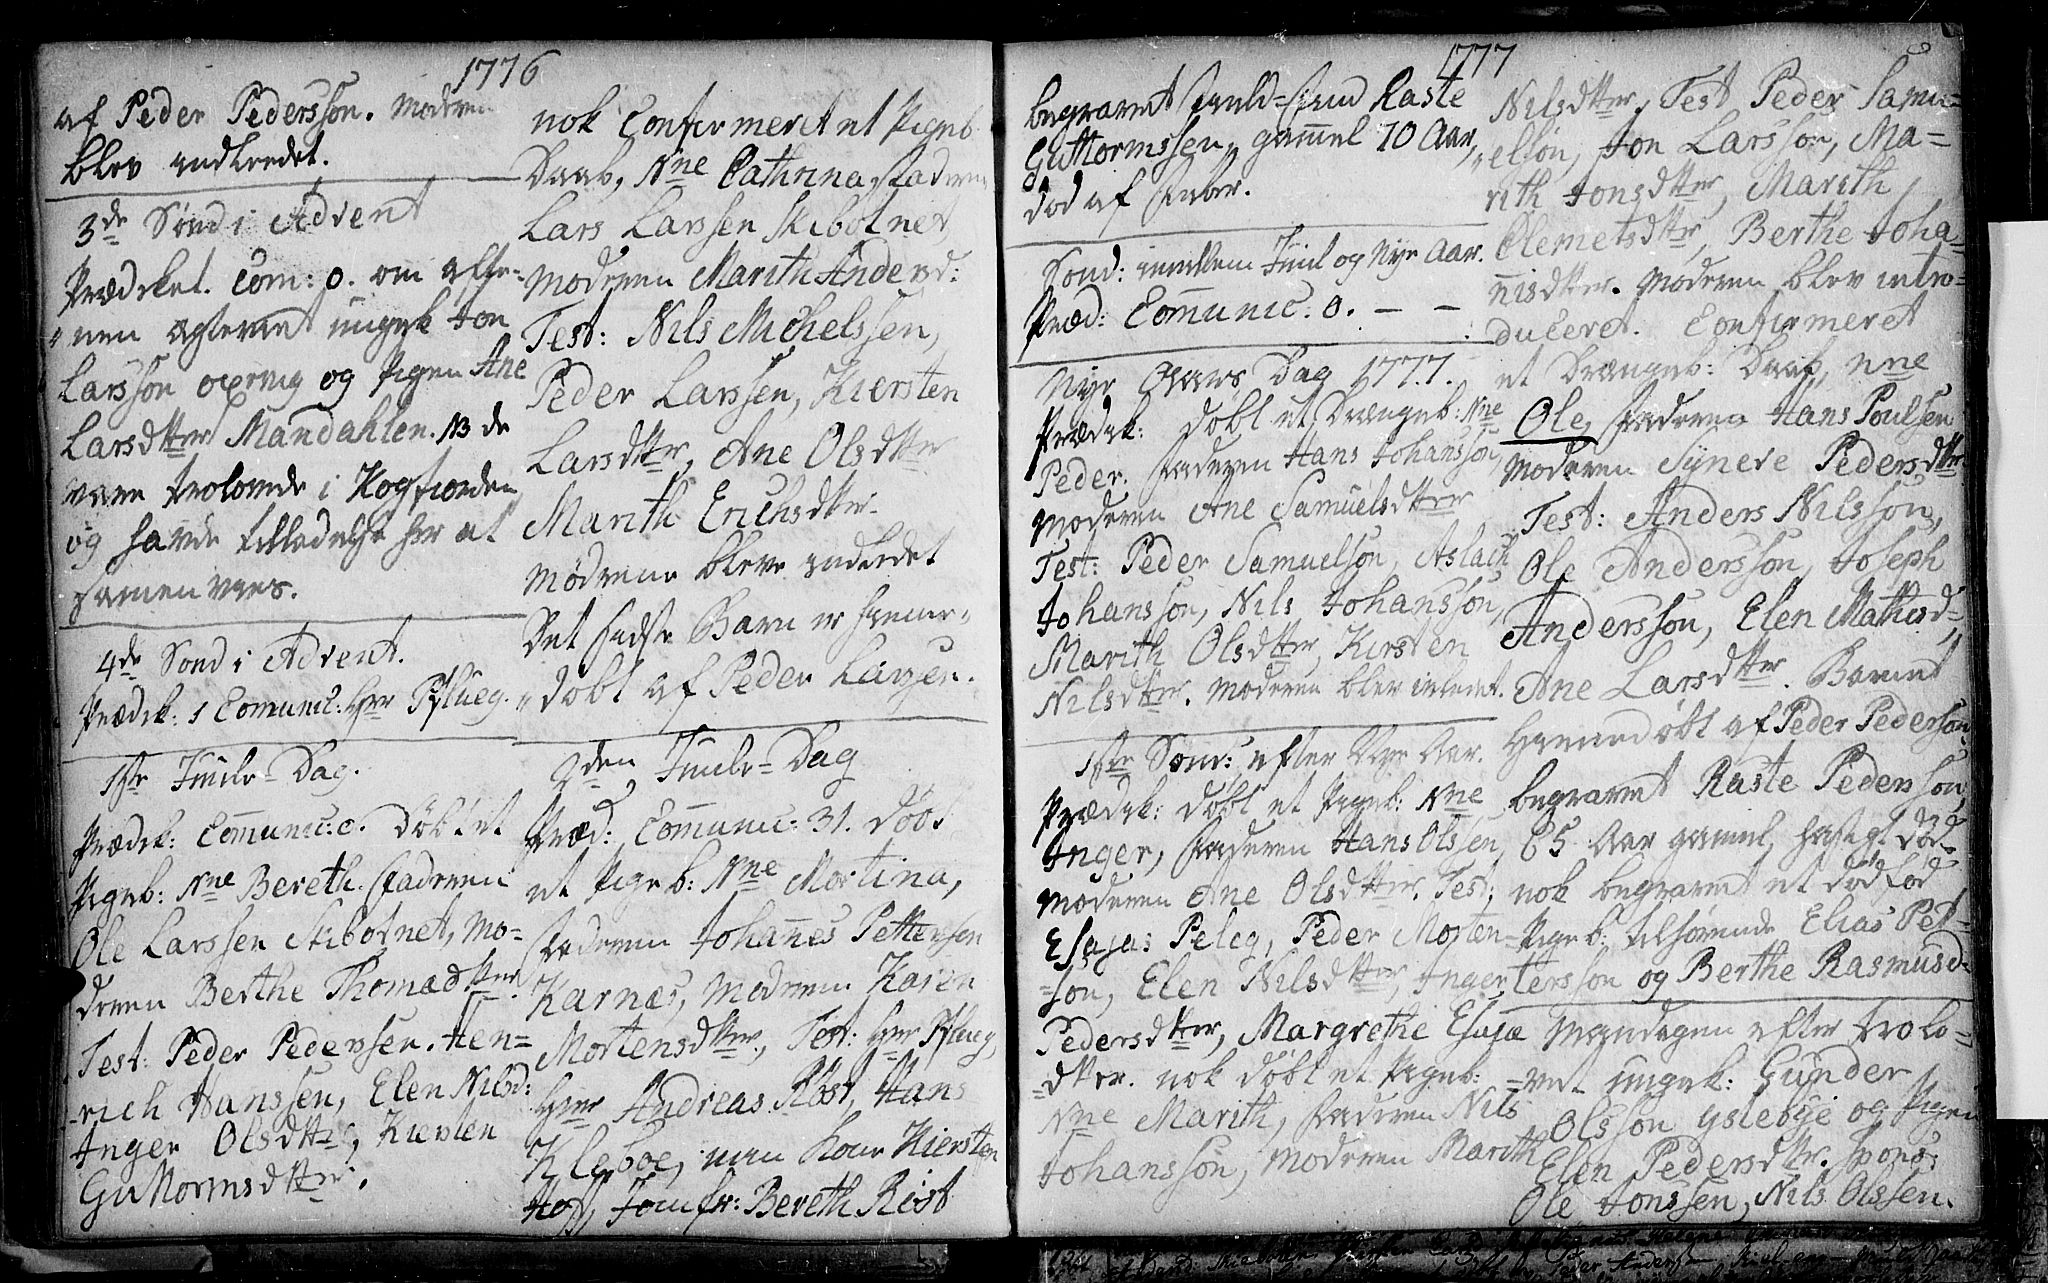 1776
af Peder Pedersson. Moderen
blev indleedet.
3de Sönd i Advent
Prædiket. Com: 0. om afte-
nen ungk Jon
Larsson og Pigen Ane
Larsdtter Mandahlen. NB de
vare trolovede i
og havde tilladelse her at
samen vies.
4de Sönd i Advent.
Prædik: 1 Communic: Hrr Pflueg.
1ste Juule-Dag.
Prædik: Communic: 0. döbt et
Pigeb: Nne Bereth. Faderen
Ole Larssen Skibotnet, Mo-
deren Berthe Thomædtter
Test: Peder Pedersen. Hen=
rich Hanssen, Elen Nilsd:
Inger Olsdtter, Kiersten
Guttormsdtter.
nok Confirmeret et Pigeb
Daab, Nne Cathrina, Faderen
Lars Larssen Skibotnet
Moderen Marith Andersd:
Test: Nils Michelssen,
Peder Larssen, Kiersten
Larsdtter, Ane Olsdtter
Marith Erichsdtter.
Mödrene bleve indledet
Det sidste Barn er hieme-
döbt af Peder Larsen.
2den Juule-Dag
Præd: Communic: 31. döbt
et Pigeb: Nne Mortina,
Faderen Johannes Pettersen
Karnæs, Moderen Karen
Mortensdtter, Test: Hrr Pflueg,
Hrr Andreas Röst, Hans
Kleboe, Kiersten
Hoff, Jomfr: Bereth Röst
1777
begravet Raste
Guttormssen, gammel 70 Aar,
död af
Sönd: imellem Juul og Nye Aar.
Præd: Communic: 0. — —
Nye Aars Dag 1777.
Prædik: döbt et Drængeb: Nne
Peder. Faderen Hans Johansson,
Moderen Ane Samuelsdtter
Test: Peder Samuelsön, Aslach
Johansson, Nils Johansson,
Marith Olsdtter, Kirsten
Nilsdtter. Moderen blev inledet.
1ste Sönd: efter Nye Aar.
Prædik: döbt et Pigeb: Nne
Inger, Faderen Hans Olssen,
Moderen Ane Olsdtter. Test:
Esajas Peleg, Peder Morten=
=son, Elen Nilsdtter, Inger
Pedersdtter, Margrethe Esajæ
=dtter. nok döbt et Pigeb:
Nne Marith, Faderen Nils
Johansson, Moderen Marith
Nilsdtter, Test Peder Samu=
elsön, Jon Larsson, Ma=
rith Jonsdtter, Marith
Clemetsdtter, Berthe Joha=
nnisdtter. Moderen blev intro=
duceret. Confirmeret
et Drængeb: Daab, nne
Ole, Faderen Hans Poulsen
Moderen Synere Pedersdtter
Test: Anders Nilsson,
Ole Andersson, Joseph
Andersson, Elen Mathisd-
Ane Larsdtter. Barnet
Hiemedöbt af Peder Pederson
begravet Raste Pedersson,
65 Aar gammel, hastigt död.
nok begravet et död föd
Pigeb: tilhörende Elias Pet-
tersson og Berthe Rasmusd-
Mandagen efter trolo=
=vet ungk: Gunder
Olsson Yslebye og Pigen
Elen Pedersdtter. Spons:
Ole Jonssen, Nils Olssen.